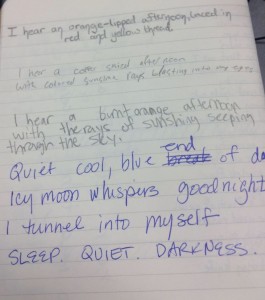 I hear an orange-lipped afternoon, laced in
red and yellow thread
I hear a afternoon
with colored sunshine rays into my eyes
I hear a burnt orange afternoon
with the rays of sunshing seeping
through the sky.
Quiet cool, blue end of da
Icy moon whispers goodnight
I tunnel into myself
SLEEP. QUIET. DARKNESS.